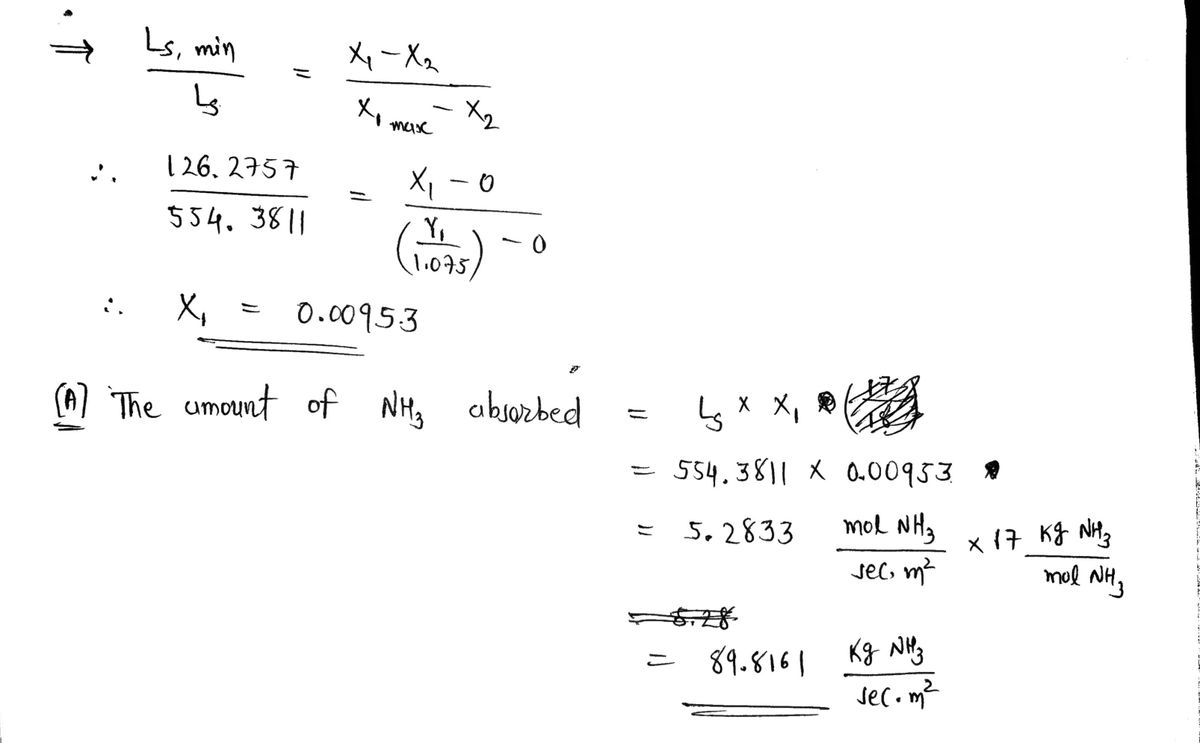 ⇒ Ls, min / Ls = X₁ − X₂ / X₁ max − X₂
∴ 126.2757 / 554.3811 = X₁ − 0 / (Y₁ / 1.075) − 0
∴ X₁ = 0.00953
(A) The amount of NH₃ absorbed = Ls × X₁
= 554.3811 × 0.00953
= 5.2833 mol NH₃ / sec. m² × 17 Kg NH₃ / mol NH₃
= 5.28
= 89.8161 Kg NH₃ / sec. m²